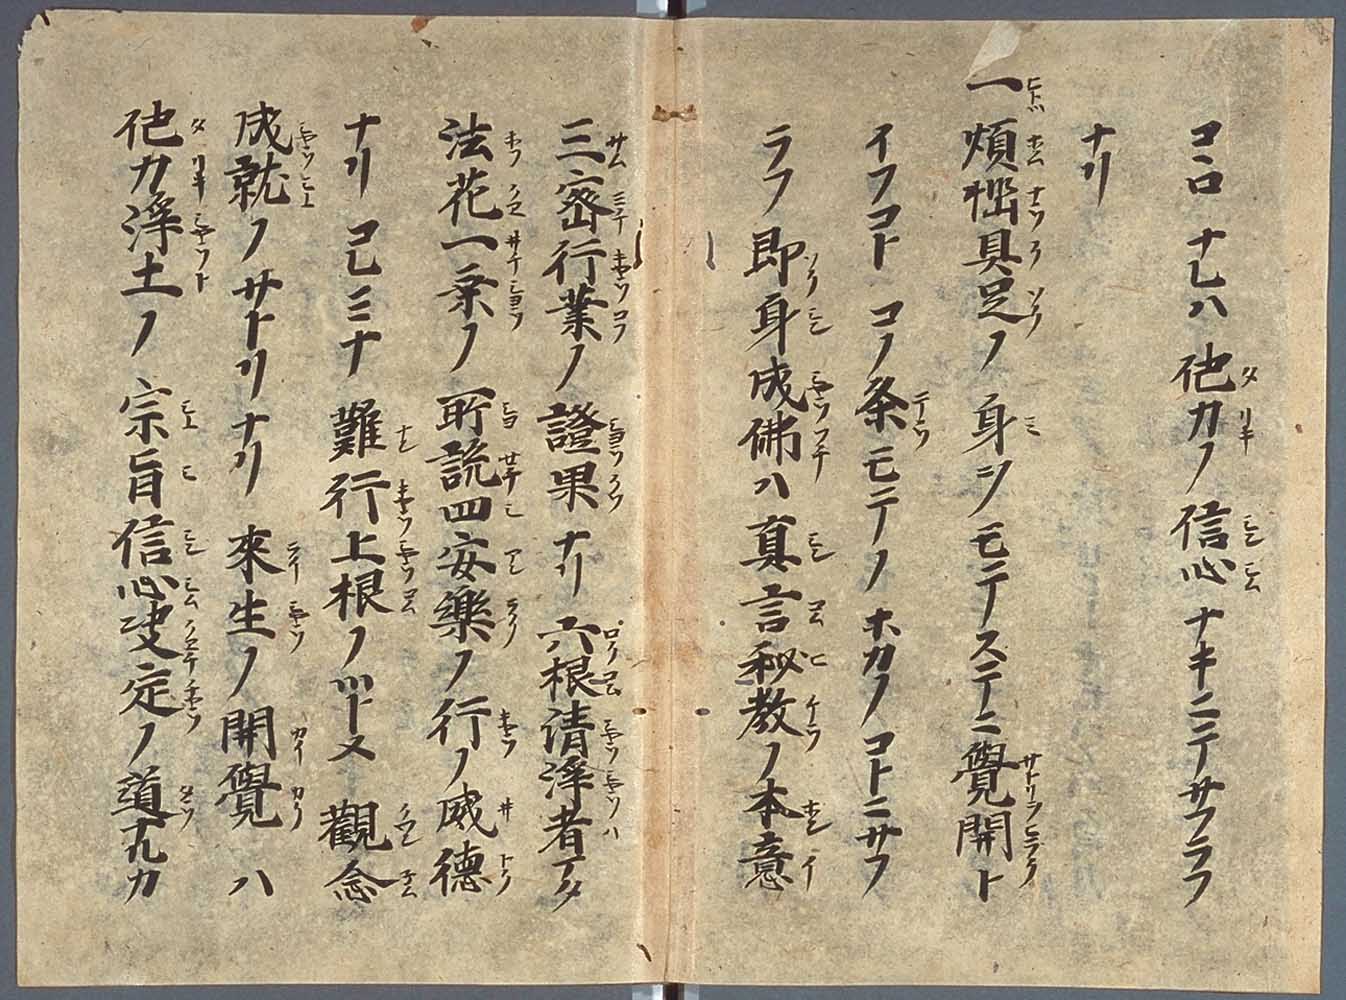 コロナレハ他力ノ信心ナキニテサフラフ
ナリ
一煩惱具足ノ身ヲモテステニ覺開ト
イフコトコノ条モテノホカノコトニサフ
ラフ即身成佛ハ真言秘教ノ本意
三密行業ノ證果ナリ六根清淨者マタ
法花一乗ノ所説四安樂ノ行ノ威德
ナリコレミナ難行上根ノツトメ觀念
成就ノサトリナリ來生ノ開覺ハ
他力淨土ノ宗旨信心決定ノ道ナルカ